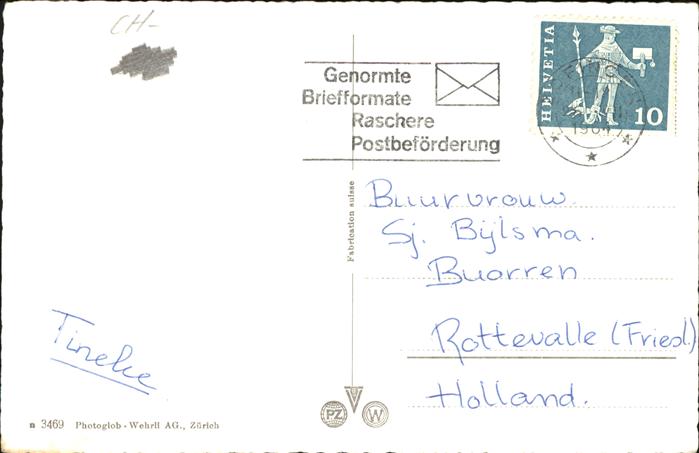 CH-
Genormte
Briefformate
Raschere
Postbeförderung
HELVETIA
10
Fabrication suisse
Buurvrouw
Sj. Bijlsma.
Buorren
Rottevalle (Friesl.)
Holland.
Tineke
PZ W
n 3469 Photoglob-Wehrli AG., Zürich